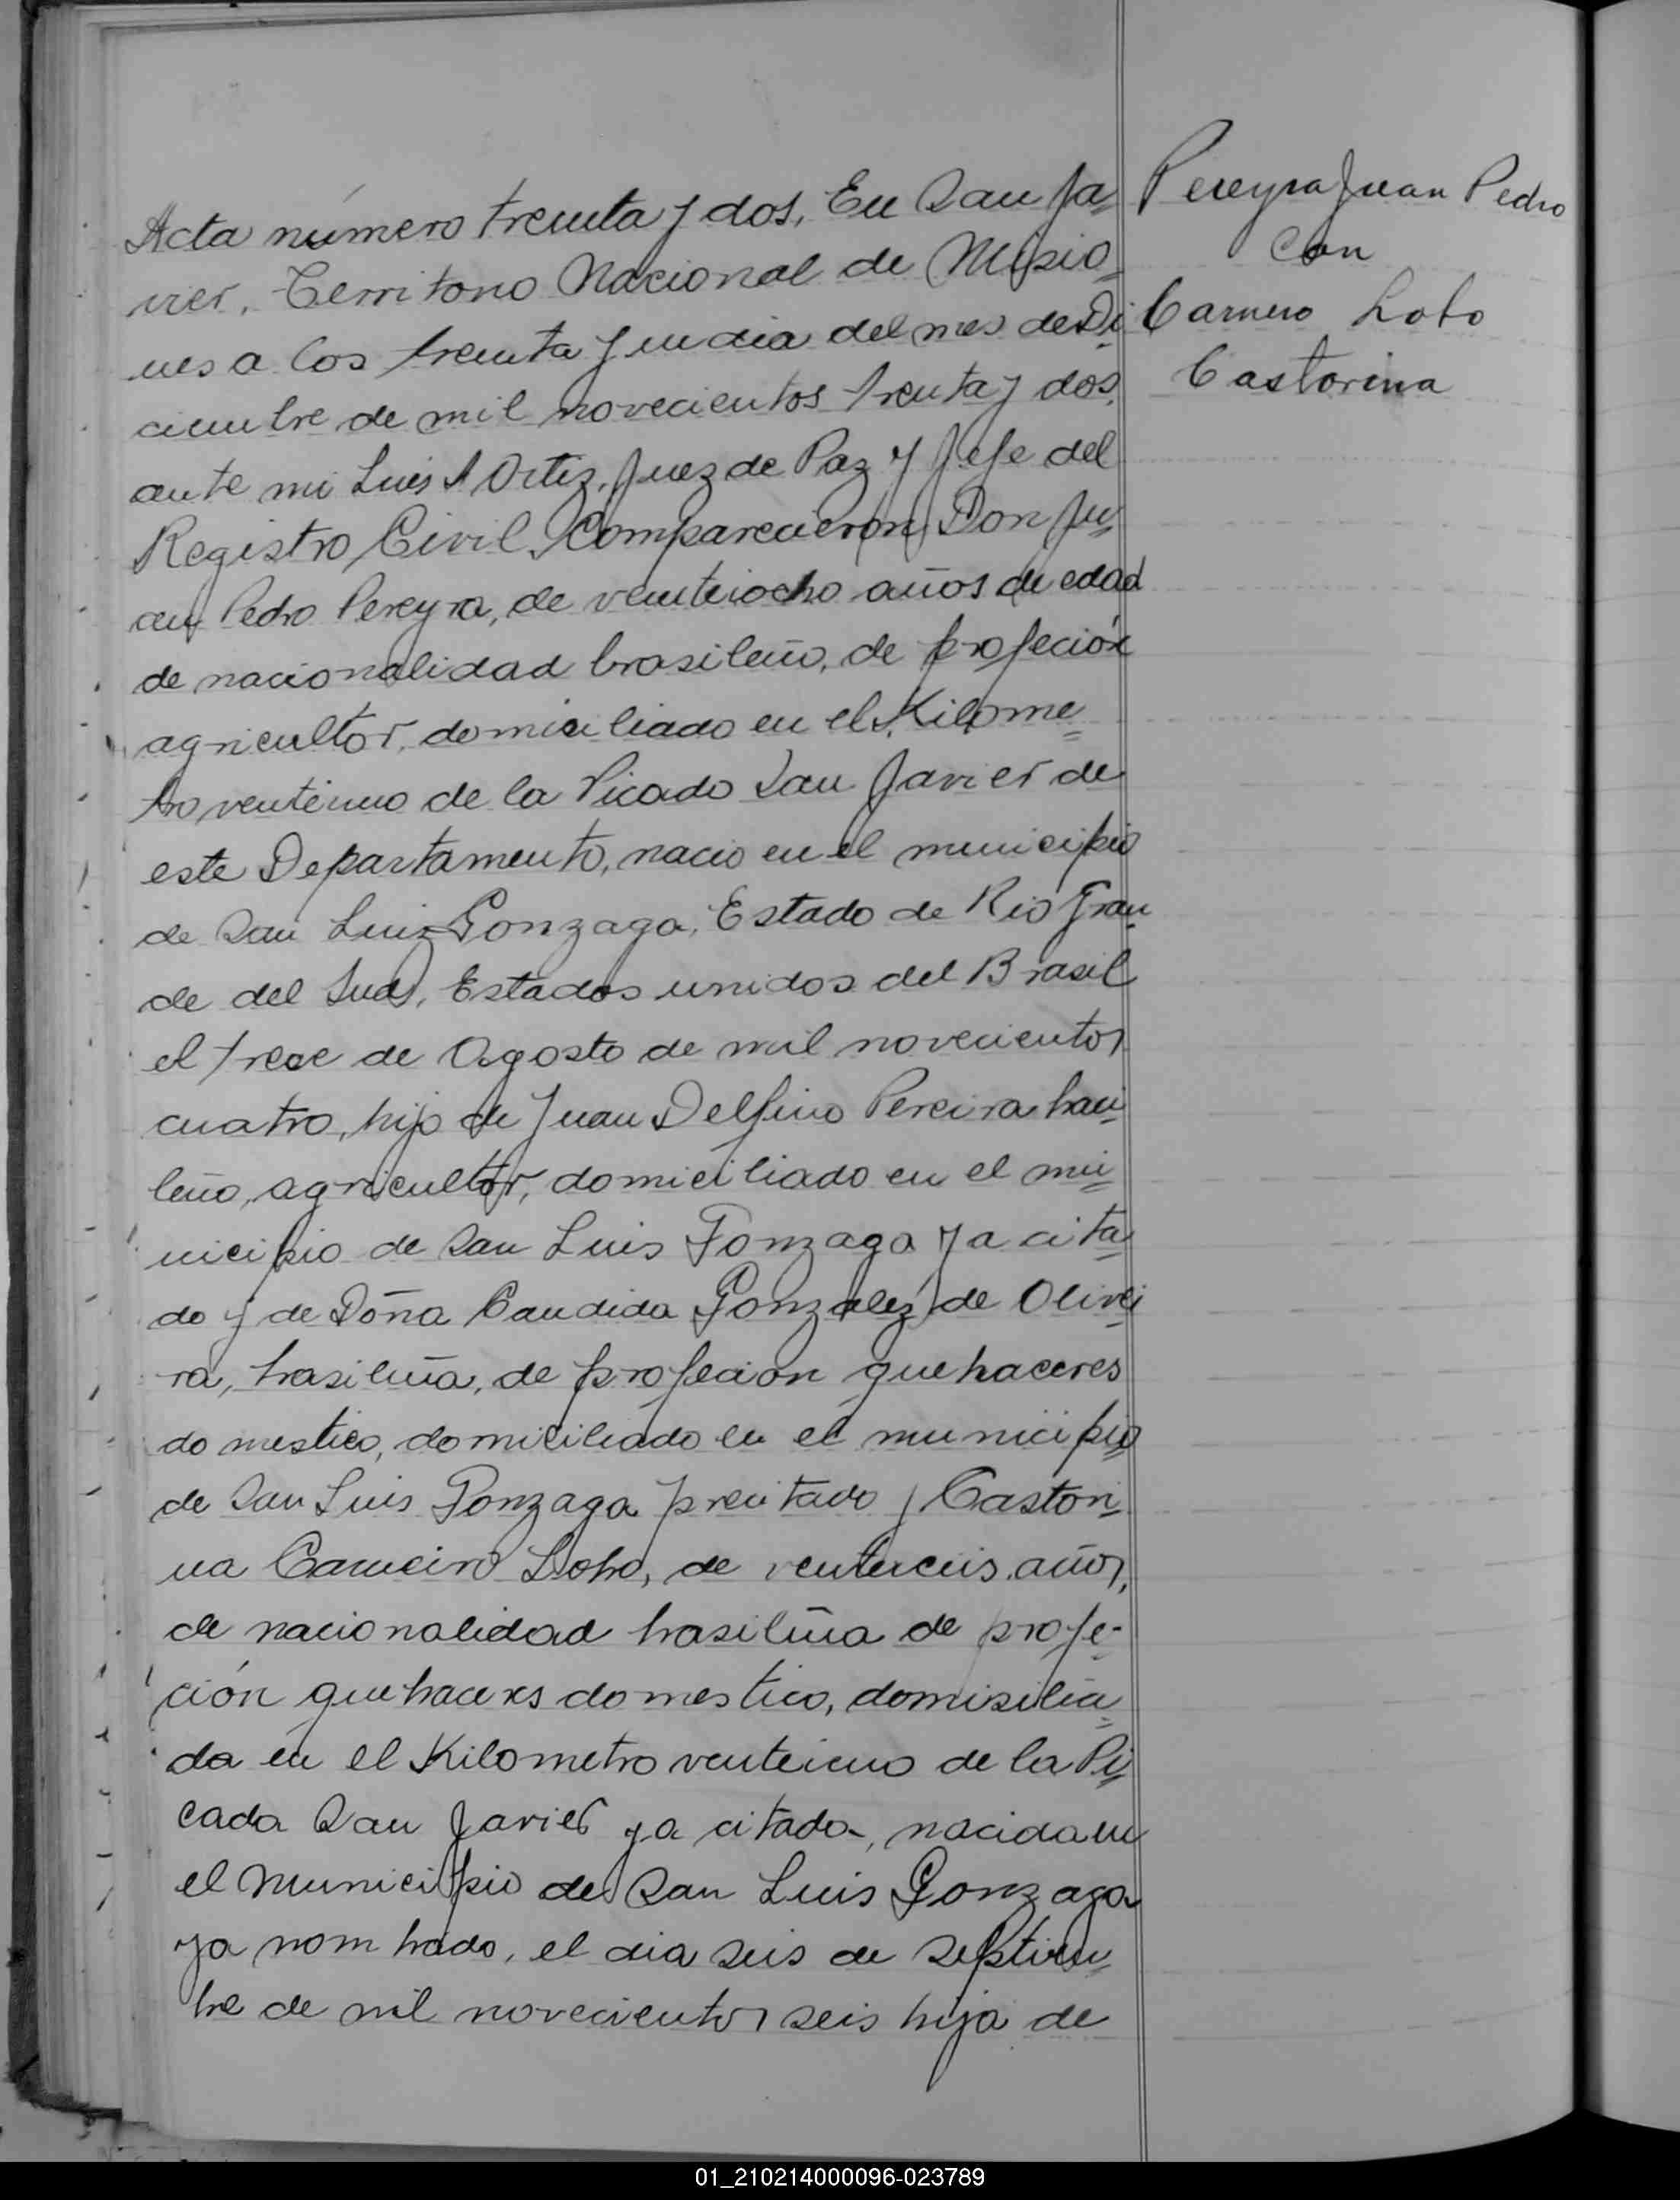 Acta número treinta y dos. En San Ja=
vier, Territorio Nacional de Misio=
nes a los treinta y un dia del mes de Di
ciembre de mil novecientos treinta y dos,
ante mi Luis A Ortiz, Juez de Paz y Jefe del
Registro Civil, Comparecieron Don Ju=
an Pedro Pereyra, de veinteiocho años de edad
de nacionalidad brasileño, de profeción
agricultor, domiciliado en el Kilome=
tro venteiuno de la Picado San Javier de
este Departamento, nacio en el municipio
de San Luis Gonzaga, Estado de Rio Gran=
de del Sud, Estados unidos del Brasil
el trece de Agosto de mil novecientos
cuatro, hijo de Juan Delfino Pereira brasi=
leño, agricultor, domiciliado en el mu=
nicipio de San Luis Gonzaga ya cita=
do y de Doña Candida Gonzalez de Olivei
ra, brasileña, de profecion quehaceres
domestico, domiciliado en el municipio
de San Luis Gonzaga precitado y Castori=
na Carneiro Lobo, de venteiceis años,
de nacionalidad brasileña de profe=
ción quehaceres domestico, domisilia=
da en el Kilometro venteiuno de la Pi=
cada San Javier ya citado, nacida en
el Municipio de San Luis Gonzaga
ya nombrado, el dia seis de Septiem=
bre de mil novecientos seis hija de
Pereyra Juan Pedro
Con
Carnero Lobo
Castorina
01_210214000096-023789